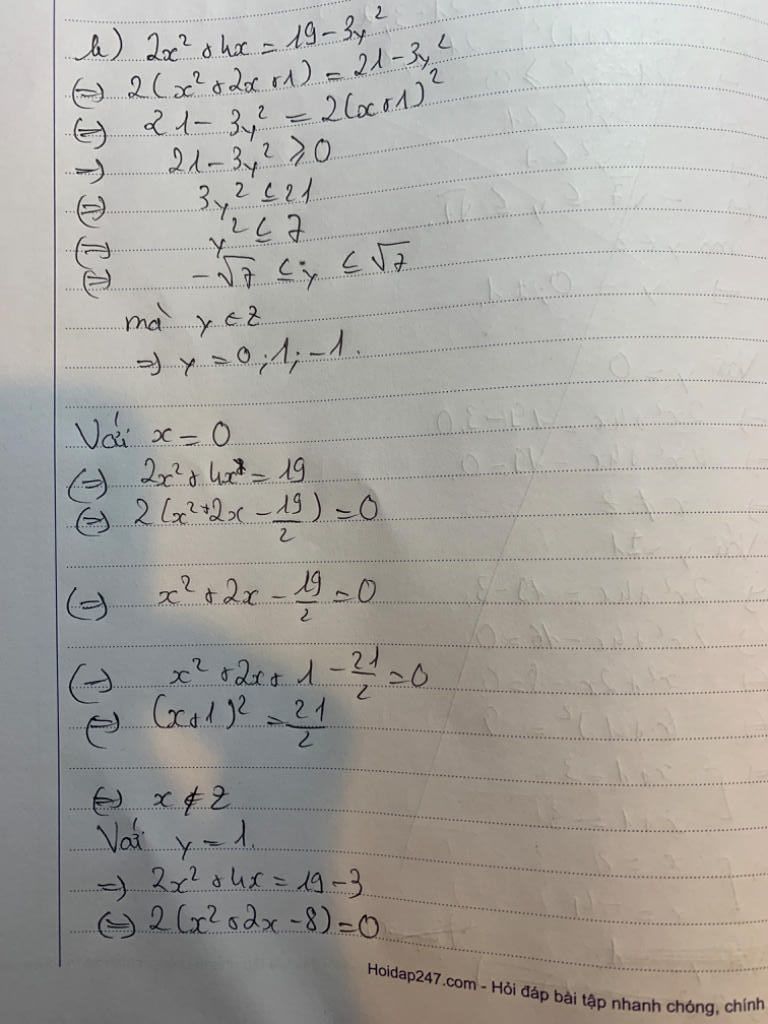 h) 2x² + 4x = 19 - 3y²
(=) 2(x² + 2x + 1) = 21 - 3y²
(=) 21 - 3y² = 2(x+1)²
=) 21 - 3y² ⩾ 0
(=) 3y² ≤ 21
(=) y² ≤ 7
(=) -√7 ≤ y ≤ √7
mà y ∈ Z
=) y = 0; 1; -1.
Với x = 0
(=) 2x² + 4x = 19
(=) 2(x² + 2x - 19/2) = 0
(=) x² + 2x - 19/2 = 0
(=) x² + 2x + 1 - 21/2 = 0
(=) (x+1)² = 21/2
(=) x ∉ Z
Với y = 1.
=) 2x² + 4x = 19 - 3
(=) 2(x² + 2x - 8) = 0
Hoidap247.com - Hỏi đáp bài tập nhanh chóng, chính